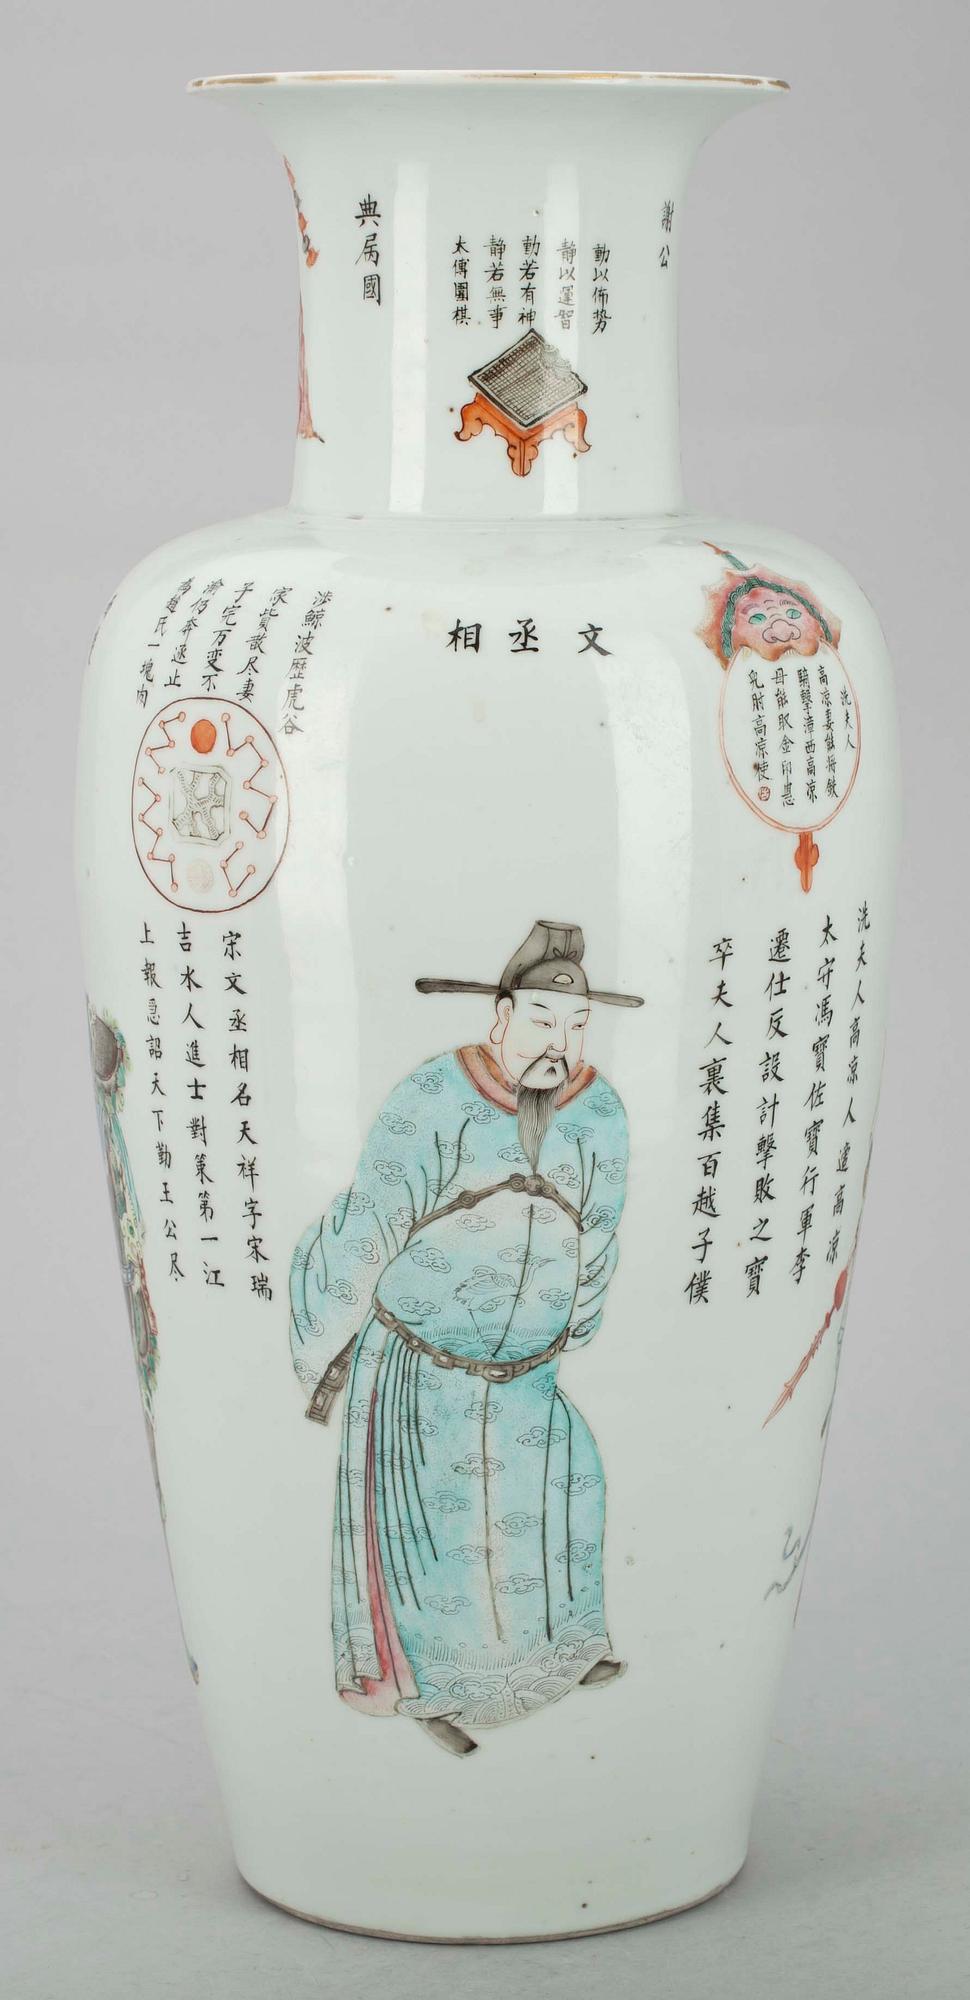 謝公
動以佈势
靜以運智
動若有神
静若無事
太傅圍棋
典属國
文丞相
洗夫人
高凉妻能将鉄
騎擊漳西高凉
母能取金印惠
児肘高凉使
洗夫人高凉人
太守馮寶佐寶行軍李
遷仕反設計擊敗之寶
卒夫人裏集百越子僕
涉鯨波歷虎谷
家貲散尽妻
子完万变不
渝仍奔逐止
為趙氏一塊肉
宋文丞相名天祥字宋瑞
吉水人進士對策第一江
上報急詔天下勤王公尽